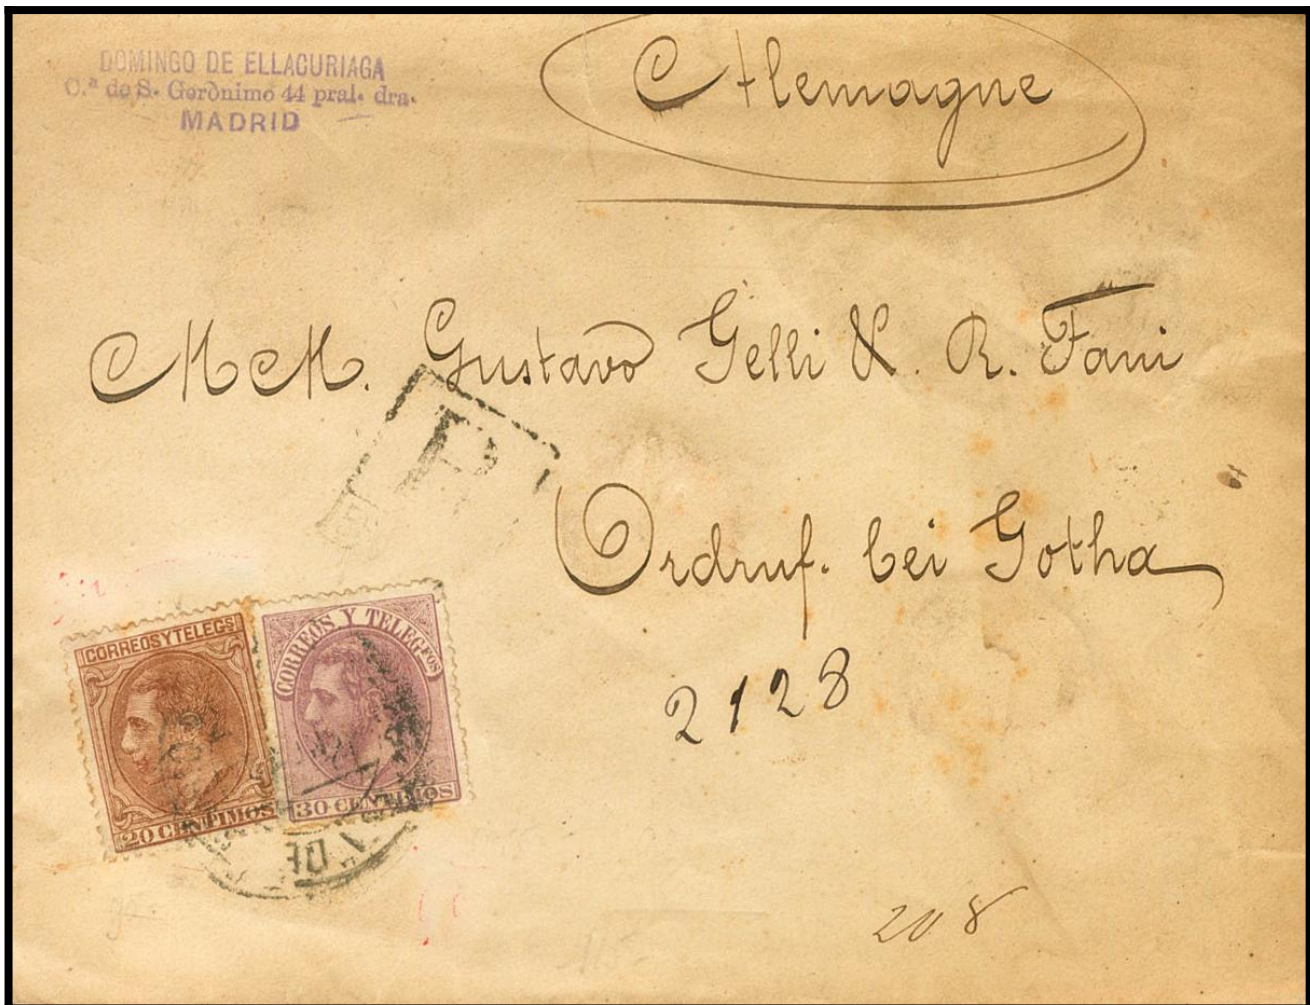 DOMINGO DE ELLACURIAGA
C.ª de S. Gerònimo 44 pral. dra.
MADRID
Allemagne
M M. Gustavo Gelli & R. Fani
R
Ordruf. bei Gotha
2128
CORREOS Y TELEGS
20 CENTIMOS
CORREOS Y TELEGFOS
30 CENTIMOS
DE
208